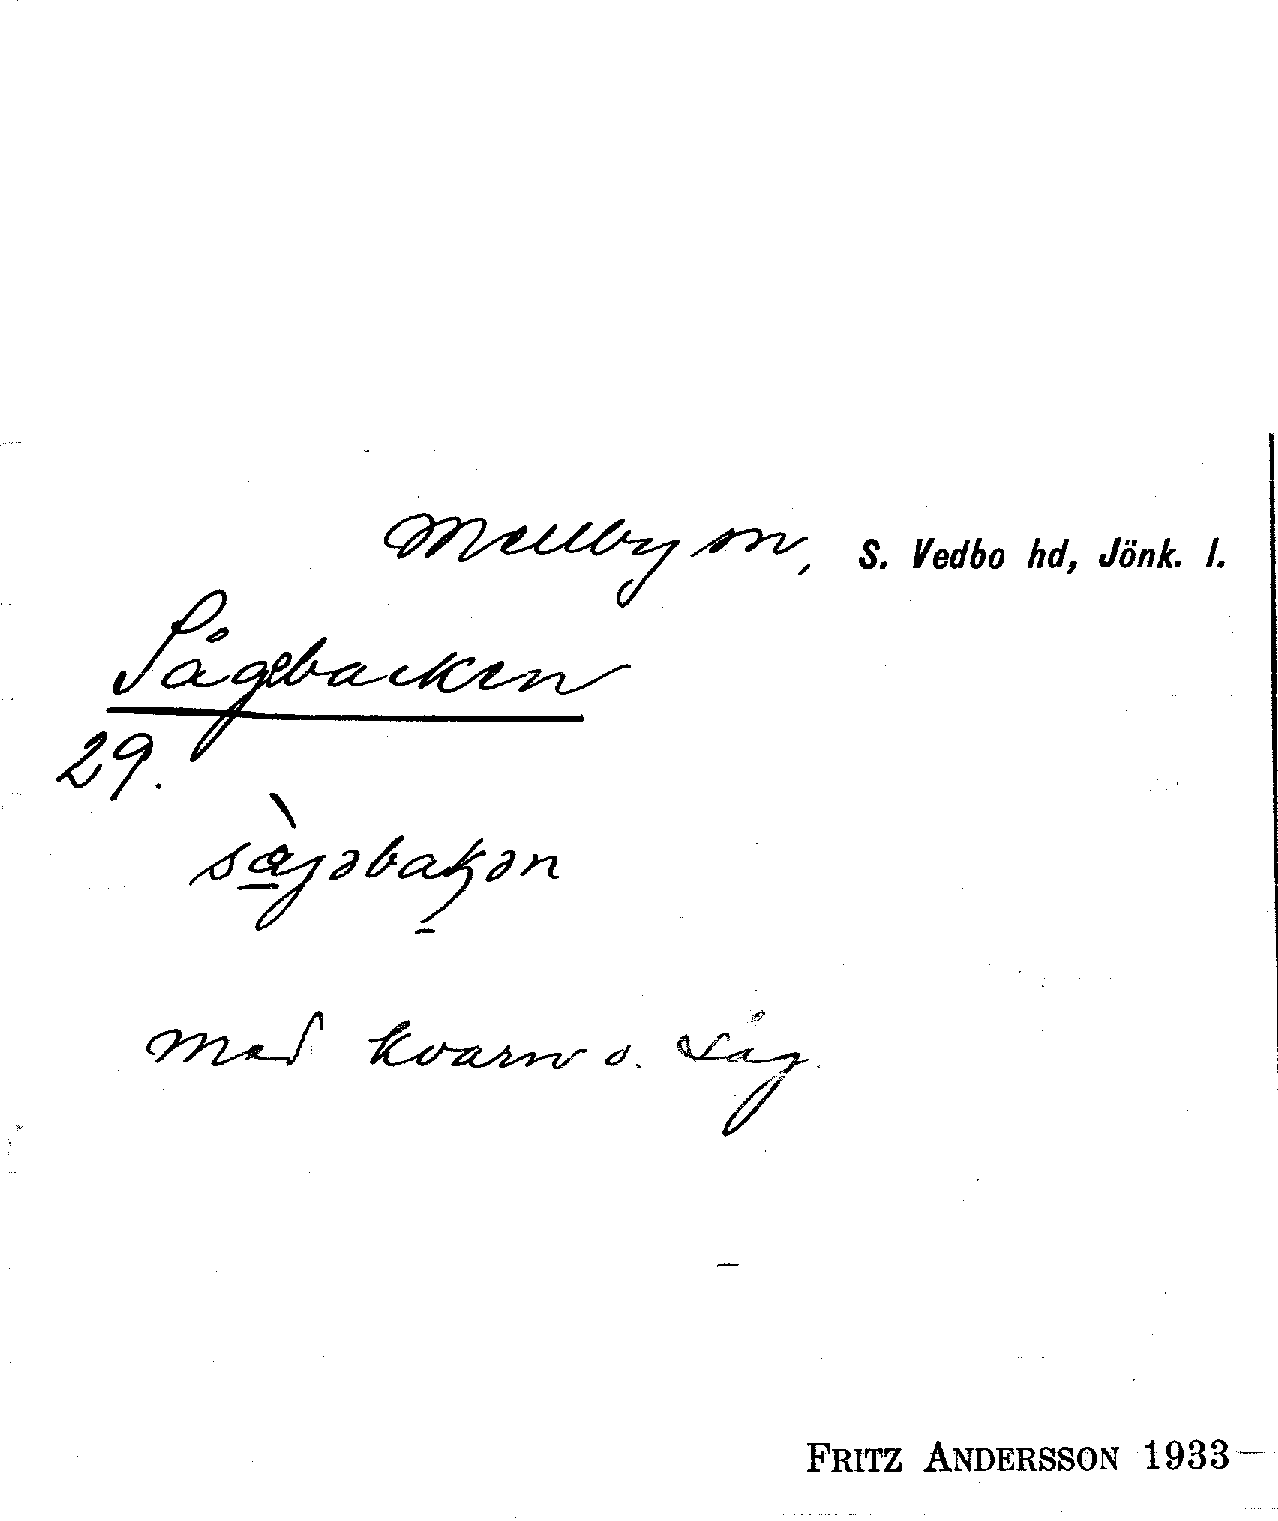 Mellby sn, S. Vedbo hd, Jönk. l.
Sågebacken
29.
sàgəbakən
med kvarn o. såg.
FRITZ ANDERSSON 1933—